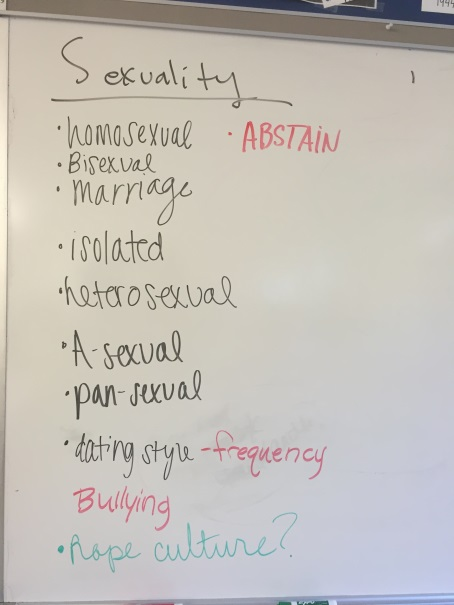 Sexuality
• homosexual • ABSTAIN
• Bisexual
• marriage
• isolated
• heterosexual
• A-sexual
• pan-sexual
• dating style - frequency
Bullying
• Rape culture?